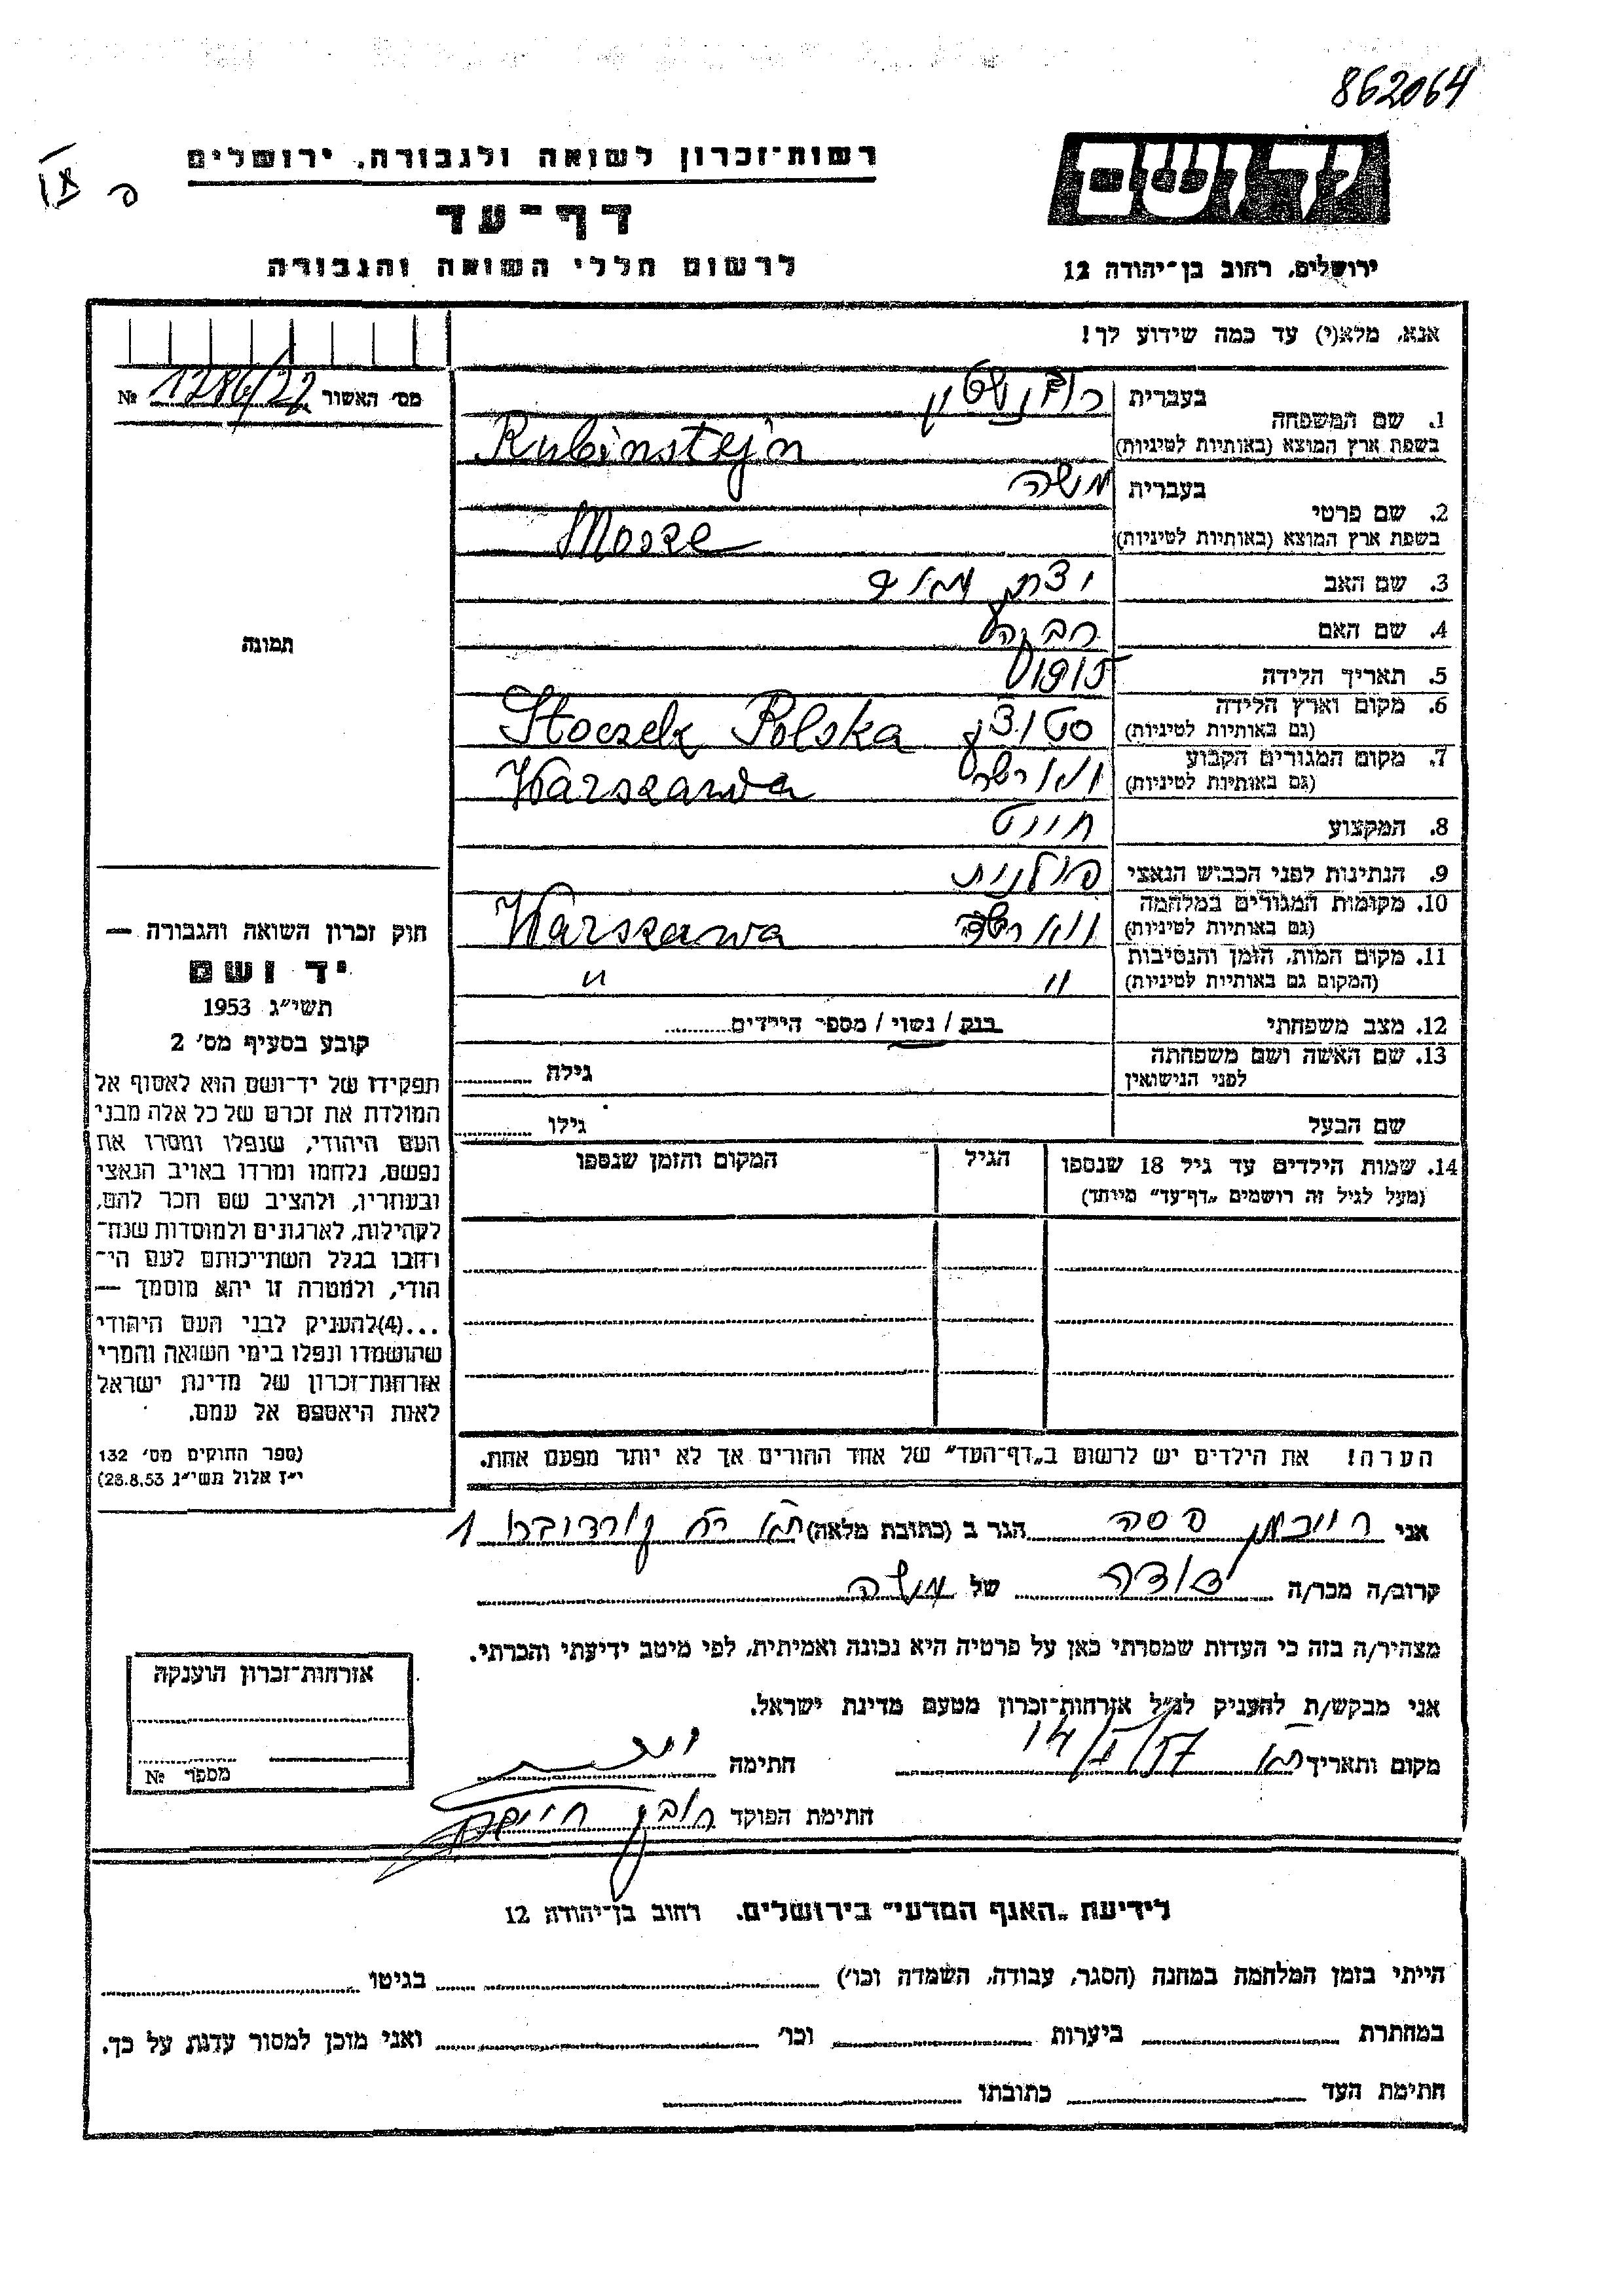 862064
יד ושם
רשות־זכרון לשואה ולגבורה, ירושלים
דף־עד
לרשום חללי השואה והגבורה
ירושלים, רחוב בן־יהודה 12
אנא, מלא(י) עד כמה שידוע לך!
מס׳ האשור № 1286/22
1. שם המשפחה
בעברית רובנשטין
בשפת ארץ המוצא (באותיות לטיניות) Rubinstejn
2. שם פרטי
בעברית משה
בשפת ארץ המוצא (באותיות לטיניות) Mosze
3. שם האב יצחק
4. שם האם רבקה
5. תאריך הלידה 1915
6. מקום וארץ הלידה
(גם באותיות לטיניות) Stoczek Polska
7. מקום המגורים הקבוע
(גם באותיות לטיניות) ווארשה Warszawa
8. המקצוע חייט
9. הנתינות לפני הכבוש הנאצי פולנית
10. מקומות המגורים במלחמה
(גם באותיות לטיניות) ווארשה Warszawa
11. מקום המות, הזמן והנסיבות
(המקום גם באותיות לטיניות) " "
12. מצב משפחתי רווק / נשוי / מספר הילדים
13. שם האשה ושם משפחתה
לפני הנישואין
גילה
שם הבעל גילו
14. שמות הילדים עד גיל 18 שנספו הגיל המקום והזמן שנספו
(מעל לגיל זה רושמים „דף־עד” מיוחד)
הערה! את הילדים יש לרשום ב„דף־העד” של אחד ההורים אך לא יותר מפעם אחת.
תמונה
חוק זכרון השואה והגבורה —
יד ושם
תשי״ג 1953
קובע בסעיף מס׳ 2
תפקידו של יד־ושם הוא לאסוף אל
המולדת את זכרם של כל אלה מבני
העם היהודי, שנפלו ומסרו את
נפשם, נלחמו ומרדו באויב הנאצי
ובעוזריו, ולהציב שם וזכר להם,
לקהילות, לארגונים ולמוסדות שנח־
רבו בגלל השתייכותם לעם הי־
הודי, ולמטרה זו יהא מוסמך —
...(4) להעניק לבני העם היהודי
שהושמדו ונפלו בימי השואה והמרי
אזרחות־זכרון של מדינת ישראל
לאות היאספם אל עמם.
(ספר החוקים מס׳ 132
י״ז אלול תשי״ג 28.8.53)
אני פסה הגר ב (כתובת מלאה) 1
קרוב/ה מכר/ה דודה של משה
מצהיר/ה בזה כי העדות שמסרתי כאן על פרטיה היא נכונה ואמיתית, לפי מיטב ידיעתי והכרתי.
אני מבקש/ת להעניק לנ״ל אזרחות־זכרון מטעם מדינת ישראל.
מקום ותאריך חתימה
חתימת הפוקד
אזרחות־זכרון הוענקה
מספר №
לידיעת „האגף המדעי” בירושלים, רחוב בן־יהודה 12
הייתי בזמן המלחמה במחנה (הסגר, עבודה, השמדה וכו׳) בגיטו
במחתרת ביערות וכו׳ ואני מוכן למסור עדות על כך.
חתימת העד כתובתו